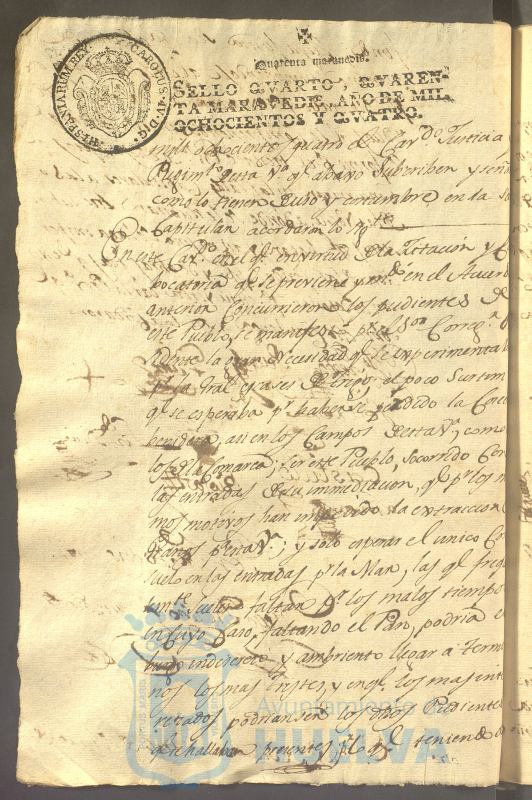 HISPANIARUM REX CAROLUS IV D G
Quarenta maravedis.
SELLO QVARTO, QVAREN-
TA MARAVEDIS, AÑO DE MIL
OCHOCIENTOS Y QVATRO.
mil ochocientos quatro el Cavdo Justicia y
Regimto desta Va qe abaxo subscriben y señ
como lo tienen de uso y costumbre en la Sa
Capitular acordaron lo sigte
En este Cavdo en el qe en virtud de la Citacion y C
bocatoria qe se previene y en el Acuerdo
anterior concurrieron los pudientes de
este Pueblo, se manifestó pr el Sor Correxr
la gran necesidad qe se experimenta
pr la gral escases de trigo, el poco surtim
qe se esperaba pr haberse perdido la Cose
benidera, asi en los Campos desta Va, como
los de la Comarca; ser este Pueblo, socorrido con
las entradas de su inmediacion, qe pr los m
mos motivos han impedido la extraccion
granos pa esta Va; y solo esperar el unico Con
suelo en las entradas pr la Mar, las qe freq
temte suelen faltar pr los malos tiempos
en cuyo caso, faltando el Pan, podria el
bulgo indiscreto y ambriento llegar a term
nos los mas tristes, y en qe los mas inte
rezados podrian ser los dhos Pudientes
qe se hallaban presentes pr lo qe teniendo
Ayuntamiento de
HUELVA